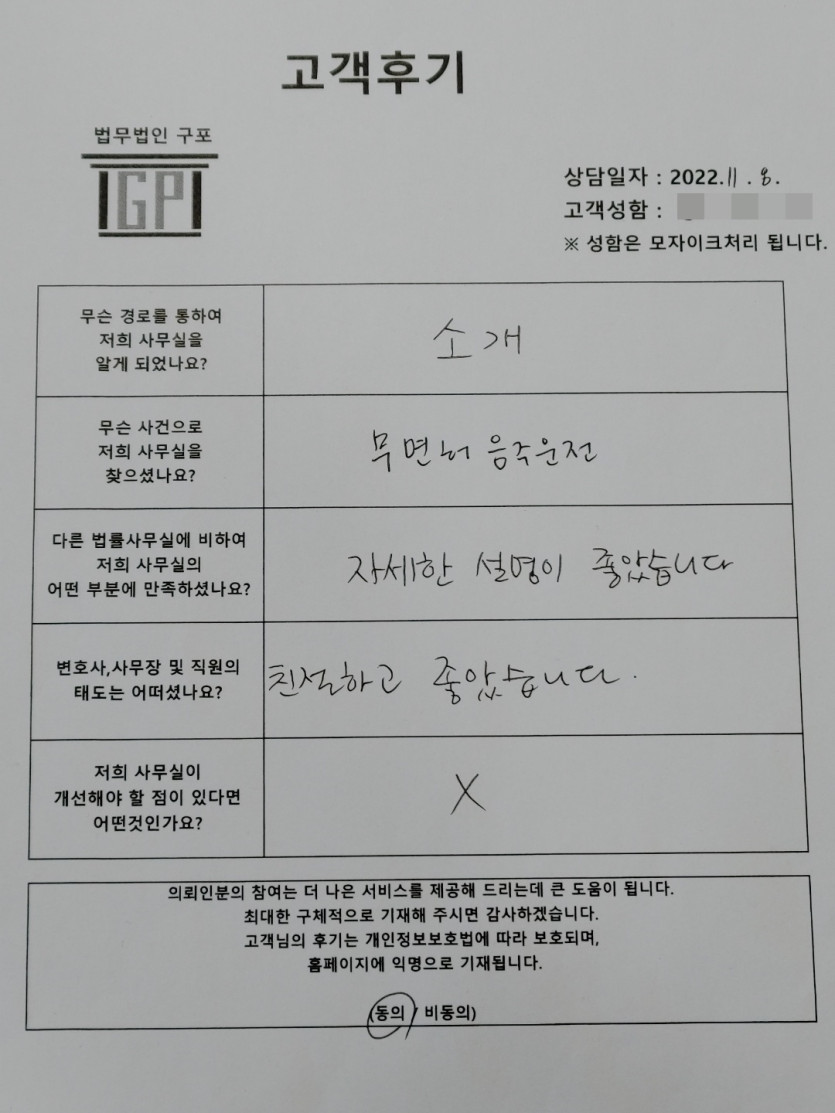 고객후기
법무법인 구포
IGPI
상담일자 : 2022.11.8.
고객성함 :
※ 성함은 모자이크처리 됩니다.
무슨 경로를 통하여
저희 사무실을
알게 되었나요?
소개
무슨 사건으로
저희 사무실을
찾으셨나요?
무면허 음주운전
다른 법률사무실에 비하여
저희 사무실의
어떤 부분에 만족하셨나요?
자세한 설명이 좋았습니다
변호사,사무장 및 직원의
태도는 어떠셨나요?
친절하고 좋았습니다.
저희 사무실이
개선해야 할 점이 있다면
어떤것인가요?
X
의뢰인분의 참여는 더 나은 서비스를 제공해 드리는데 큰 도움이 됩니다.
최대한 구체적으로 기재해 주시면 감사하겠습니다.
고객님의 후기는 개인정보보호법에 따라 보호되며,
홈페이지에 익명으로 기재됩니다.
(동의 / 비동의)